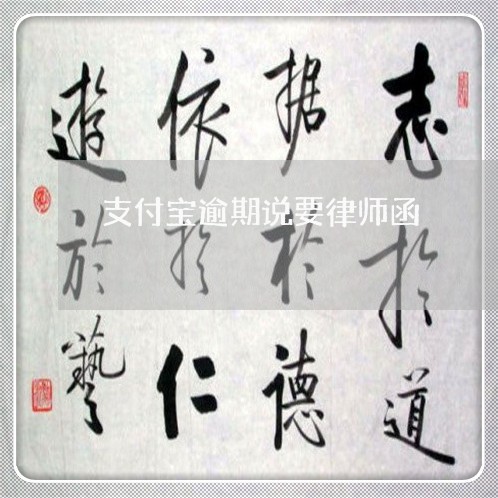 志於道
据於德
依於仁
遊於藝
支付宝逾期说要律师函